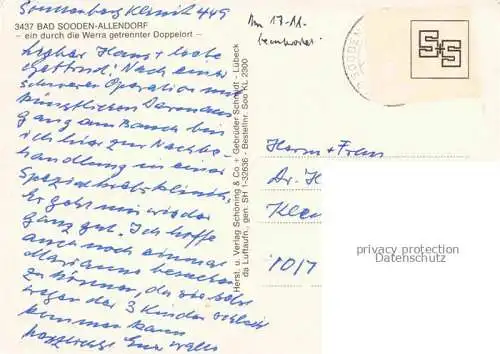 Sonnenberg Klinik 449
3437 BAD SOODEN-ALLENDORF
– ein durch die Werra getrennter Doppelort –
Am 17.11.
beantwortet
Lieber Hans + liebe
Gertrud! Nach einer
schweren Operation mit
künstlichem Darmaus-
gang am Bauch bin
ich hier zur Nachbe-
handlung in einer
Spezialklinik.
Es geht mir wieder
ganz gut. Ich hoffe
auch noch einmal
Marianne besuchen
zu können, da sie
wegen der 3 Kinder schlecht
kommen kann
Herst. u. Verlag Schöning & Co + Gebrüder Schmidt - Lübeck
db Luftaufn., gen. SH 1-32636 - Bestellnr. Soo KL 2900
SOODEN
S+S
Herrn + Frau
Dr. H
Klein
privacy protection
Datenschutz